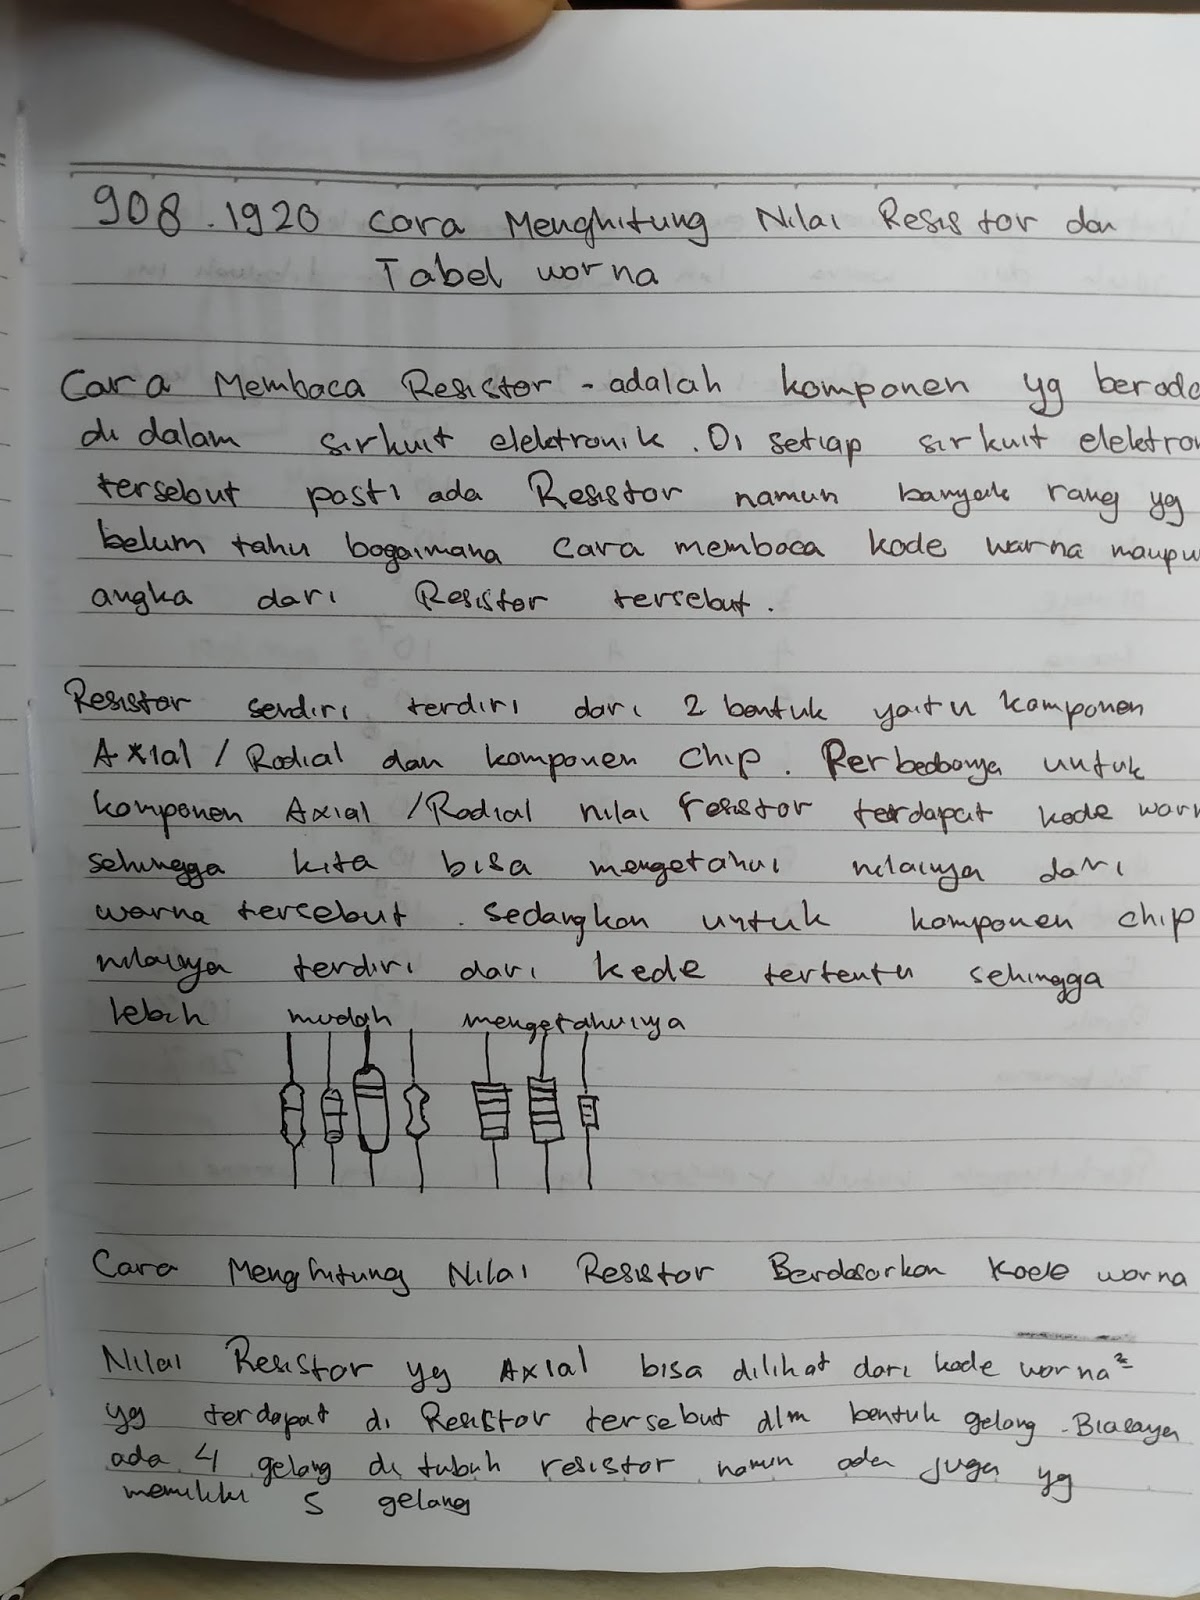 908.1920 Cara Menghitung Nilai Resistor dan
Tabel warna
Cara Membaca Resistor - adalah komponen yg berada
di dalam sirkuit elektronik. Di setiap sirkuit elektron
tersebut pasti ada Resistor namun banyak rang yg
belum tahu bagaimana cara membaca kode warna maupu
angka dari Resistor tersebut.
Resistor sendiri terdiri dari 2 bentuk yaitu komponen
Axial / Radial dan komponen chip. Perbedbanya untuk
komponen Axial / Radial nilai resistor terdapat kode warn
sehingga kita bisa mengetahui nilainya dari
warna tersebut. Sedangkan untuk komponen chip
nilainya terdiri dari kede tertentu sehingga
lebih mudah mengetahuinya
Cara Menghitung Nilai Resistor Berdasarkan Kode warna
Nilai Resistor yg Axial bisa dilihat dari kode warna²
yg terdapat di Resistor tersebut dlm bentuk gelang. Biasanya
ada 4 gelang di tubuh resistor namun ada juga yg
memiliki 5 gelang